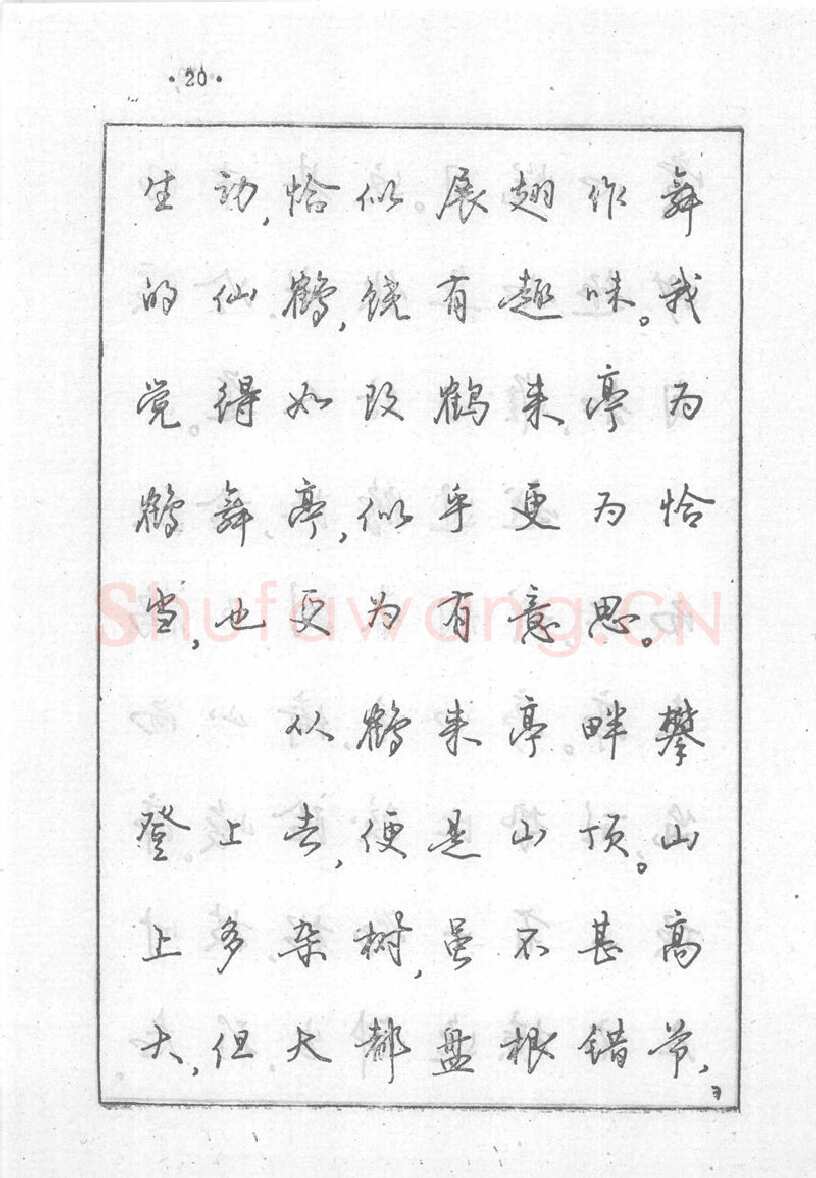 ·20·
生动,恰似展翅作舞
的仙鹤,饶有趣味。我
觉得如改鹤来亭为
鹤舞亭,似乎更为恰
当,也更为有意思。
从鹤来亭畔攀
登上去,便是山顶。山
上多杂树,虽不甚高
大,但大都盘根错节,
Shufawang.CN